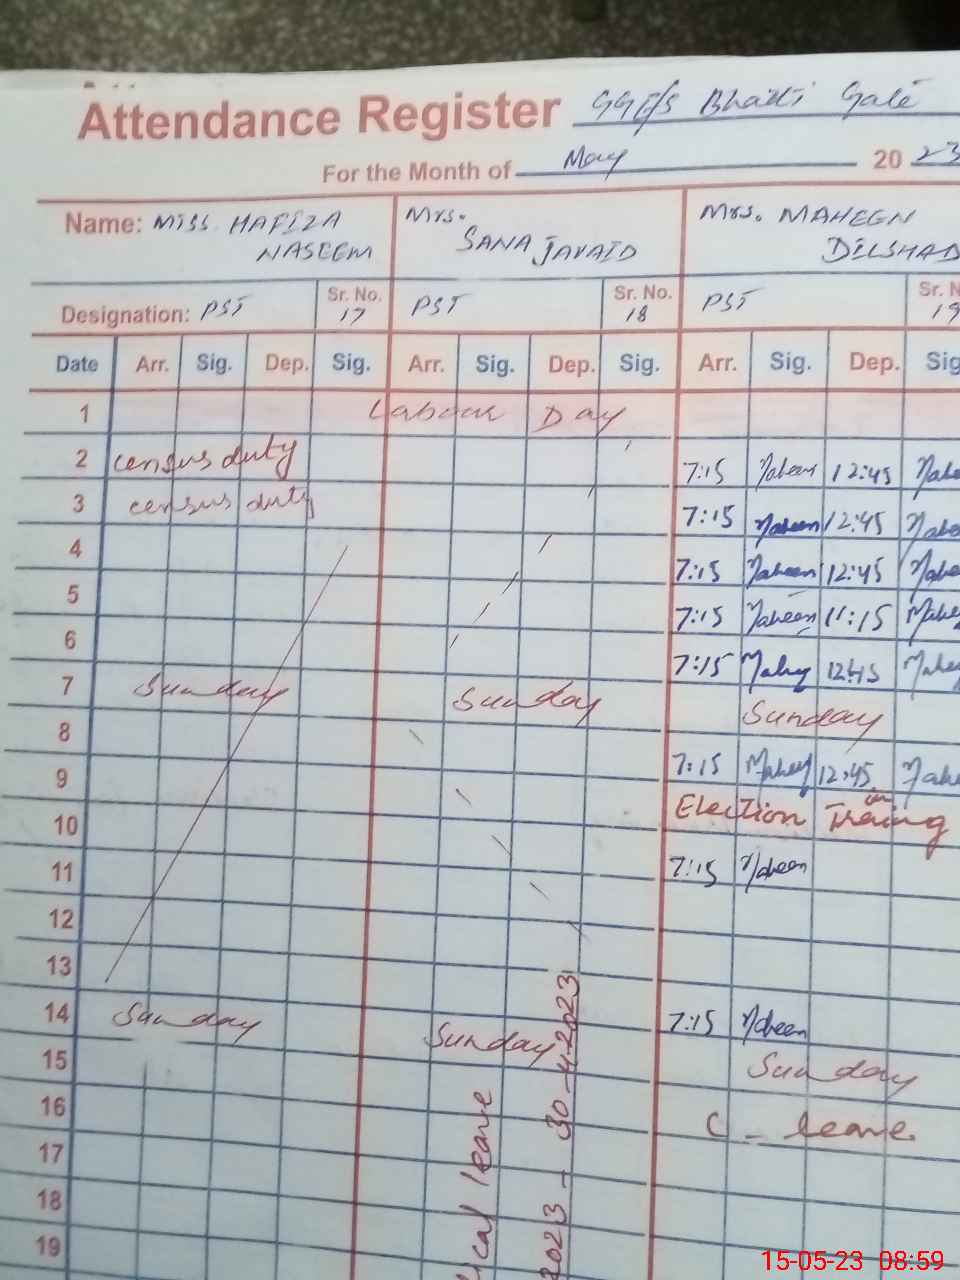 Attendance Register GGE/S Bhatti Gate
For the Month of May 2023
Name: MISS HAFIZA NASEEM
Mrs. SANA JAVAID
Mrs. MAHEEN DILSHAD
Designation: PST Sr. No. 17 PST Sr. No. 18 PST Sr. N 19
Date Arr. Sig. Dep. Sig. Arr. Sig. Dep. Sig. Arr. Sig. Dep. Sig
1 Labour Day
2 census duty 7:15 Maheen 12:45 Mahe
3 census duty 7:15 Maheen 12:45 Mahe
4 7:15 Maheen 12:45 Mahe
5 7:15 Maheen 11:15 Mahe
6 7:15 12:45 Mahe
7 Sunday Sunday Sunday
8
9 7:15 12:45 Mahe
10 Election Training
11 7:15 Maheen
12
13
14 Sunday Sunday 7:15 Maheen
15 Sunday
16 C - leave
17
18
19
ical leave
2023 - 30-4-2023
15-05-23 08:59